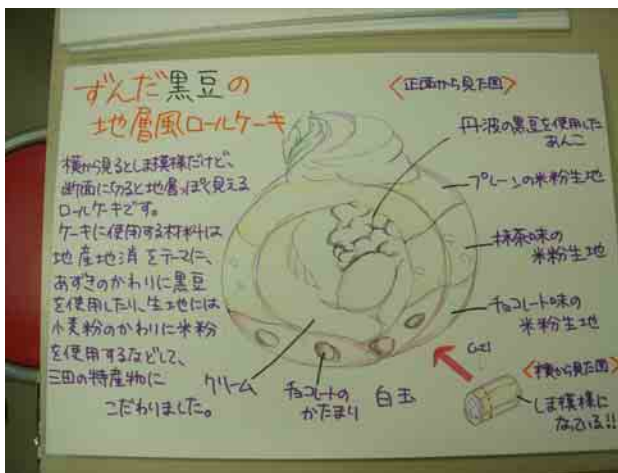 ずんだ黒豆の
地層風ロールケーキ
横から見るとしま模様だけど、
断面に切ると地層っぽく見える
ロールケーキです。
ケーキに使用する材料は
地産地消をテーマに、
あずきのかわりに黒豆
を使用したり、生地には
小麦粉のかわりに米粉
を使用するなどして、
三田の特産物に
こだわりました。
<正面から見た図>
丹波の黒豆を使用した
あんこ
プレーンの米粉生地
抹茶味の
米粉生地
チョコレート味の
米粉生地
クリーム
チョコレートの
かたまり
白玉
<横から見た図>
しま模様に
なっている!!